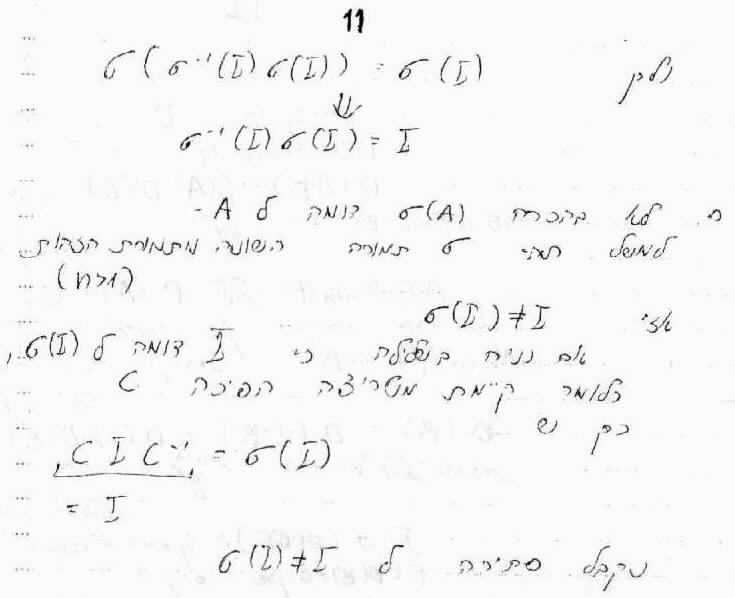 11
ולכן σ(σ⁻¹(I)σ(I)) = σ(I)
⇓
σ⁻¹(I)σ(I) = I
ח. לא בהכרח σ(A) דומה ל A -
למשל תהי σ תמורה השונה מתמורת הזהות
אזי σ(I) ≠ I
אם נניח בשלילה כי I דומה ל σ(I),
כלומר קיימת מטריצה הפיכה C
כך ש
C I C⁻¹ = σ(I)
= I
נקבל סתירה ל σ(I) ≠ I